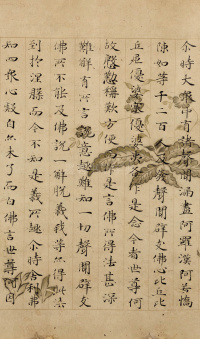 尒時大衆中有諸聲聞漏盡阿羅漢阿若憍
陳如等千二百人及發聲聞辟支佛心比丘比
丘尼優婆塞優婆夷各作是念今者世尊何
故慇懃稱歎方便而作是言佛所得法甚深
難解有所言說意趣難知一切聲聞辟支
佛所不能及佛說一解脫義我等亦得此法
到於涅槃而今不知是義所趣尒時舍利弗
知四衆心疑自亦未了而白佛言世尊何因